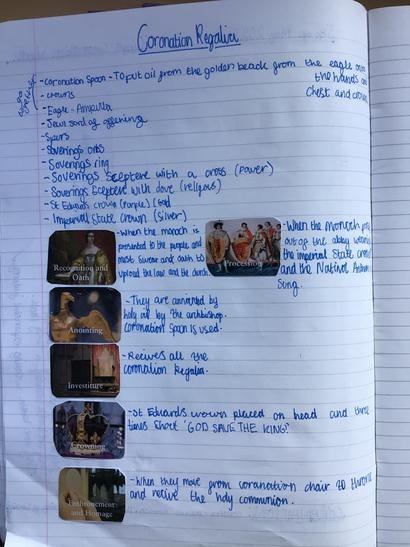 Coronation Regalia
- Coronation Spoon - To put oil from the golden beack from the eagle onto
the hands and
chest and crown
- Crowns
- Eagle - Ampulla
- Jewl sord of offering
- Spurs
- Soverings orbs
- Soverings ring
- Soverings Sceptere with a cross (power)
- Soverings Sceptere with dove (religous)
- St Edwards crown (purple) (Gold
- Imperial State Crown (silver)
Recognition and
Oath
- When the monach is
presented to the people and
must swear and oath to
upload the law and the church.
Procession
- When the monarch
out of the abbey wearing
the imperial State crown
and the National Anthem
Sung.
Anointing
- They are annointed by
holy oil by the archbishop.
Coronation Spoon is used.
Investiture
- Recives all the
coronation Regalia.
Crowning
- St Edwards crown placed on head and three
times shout 'GOD SAVE THE KING!'
Enthronement
and Homage
- When they move from coranation chair to throne
and recive the holy communion.